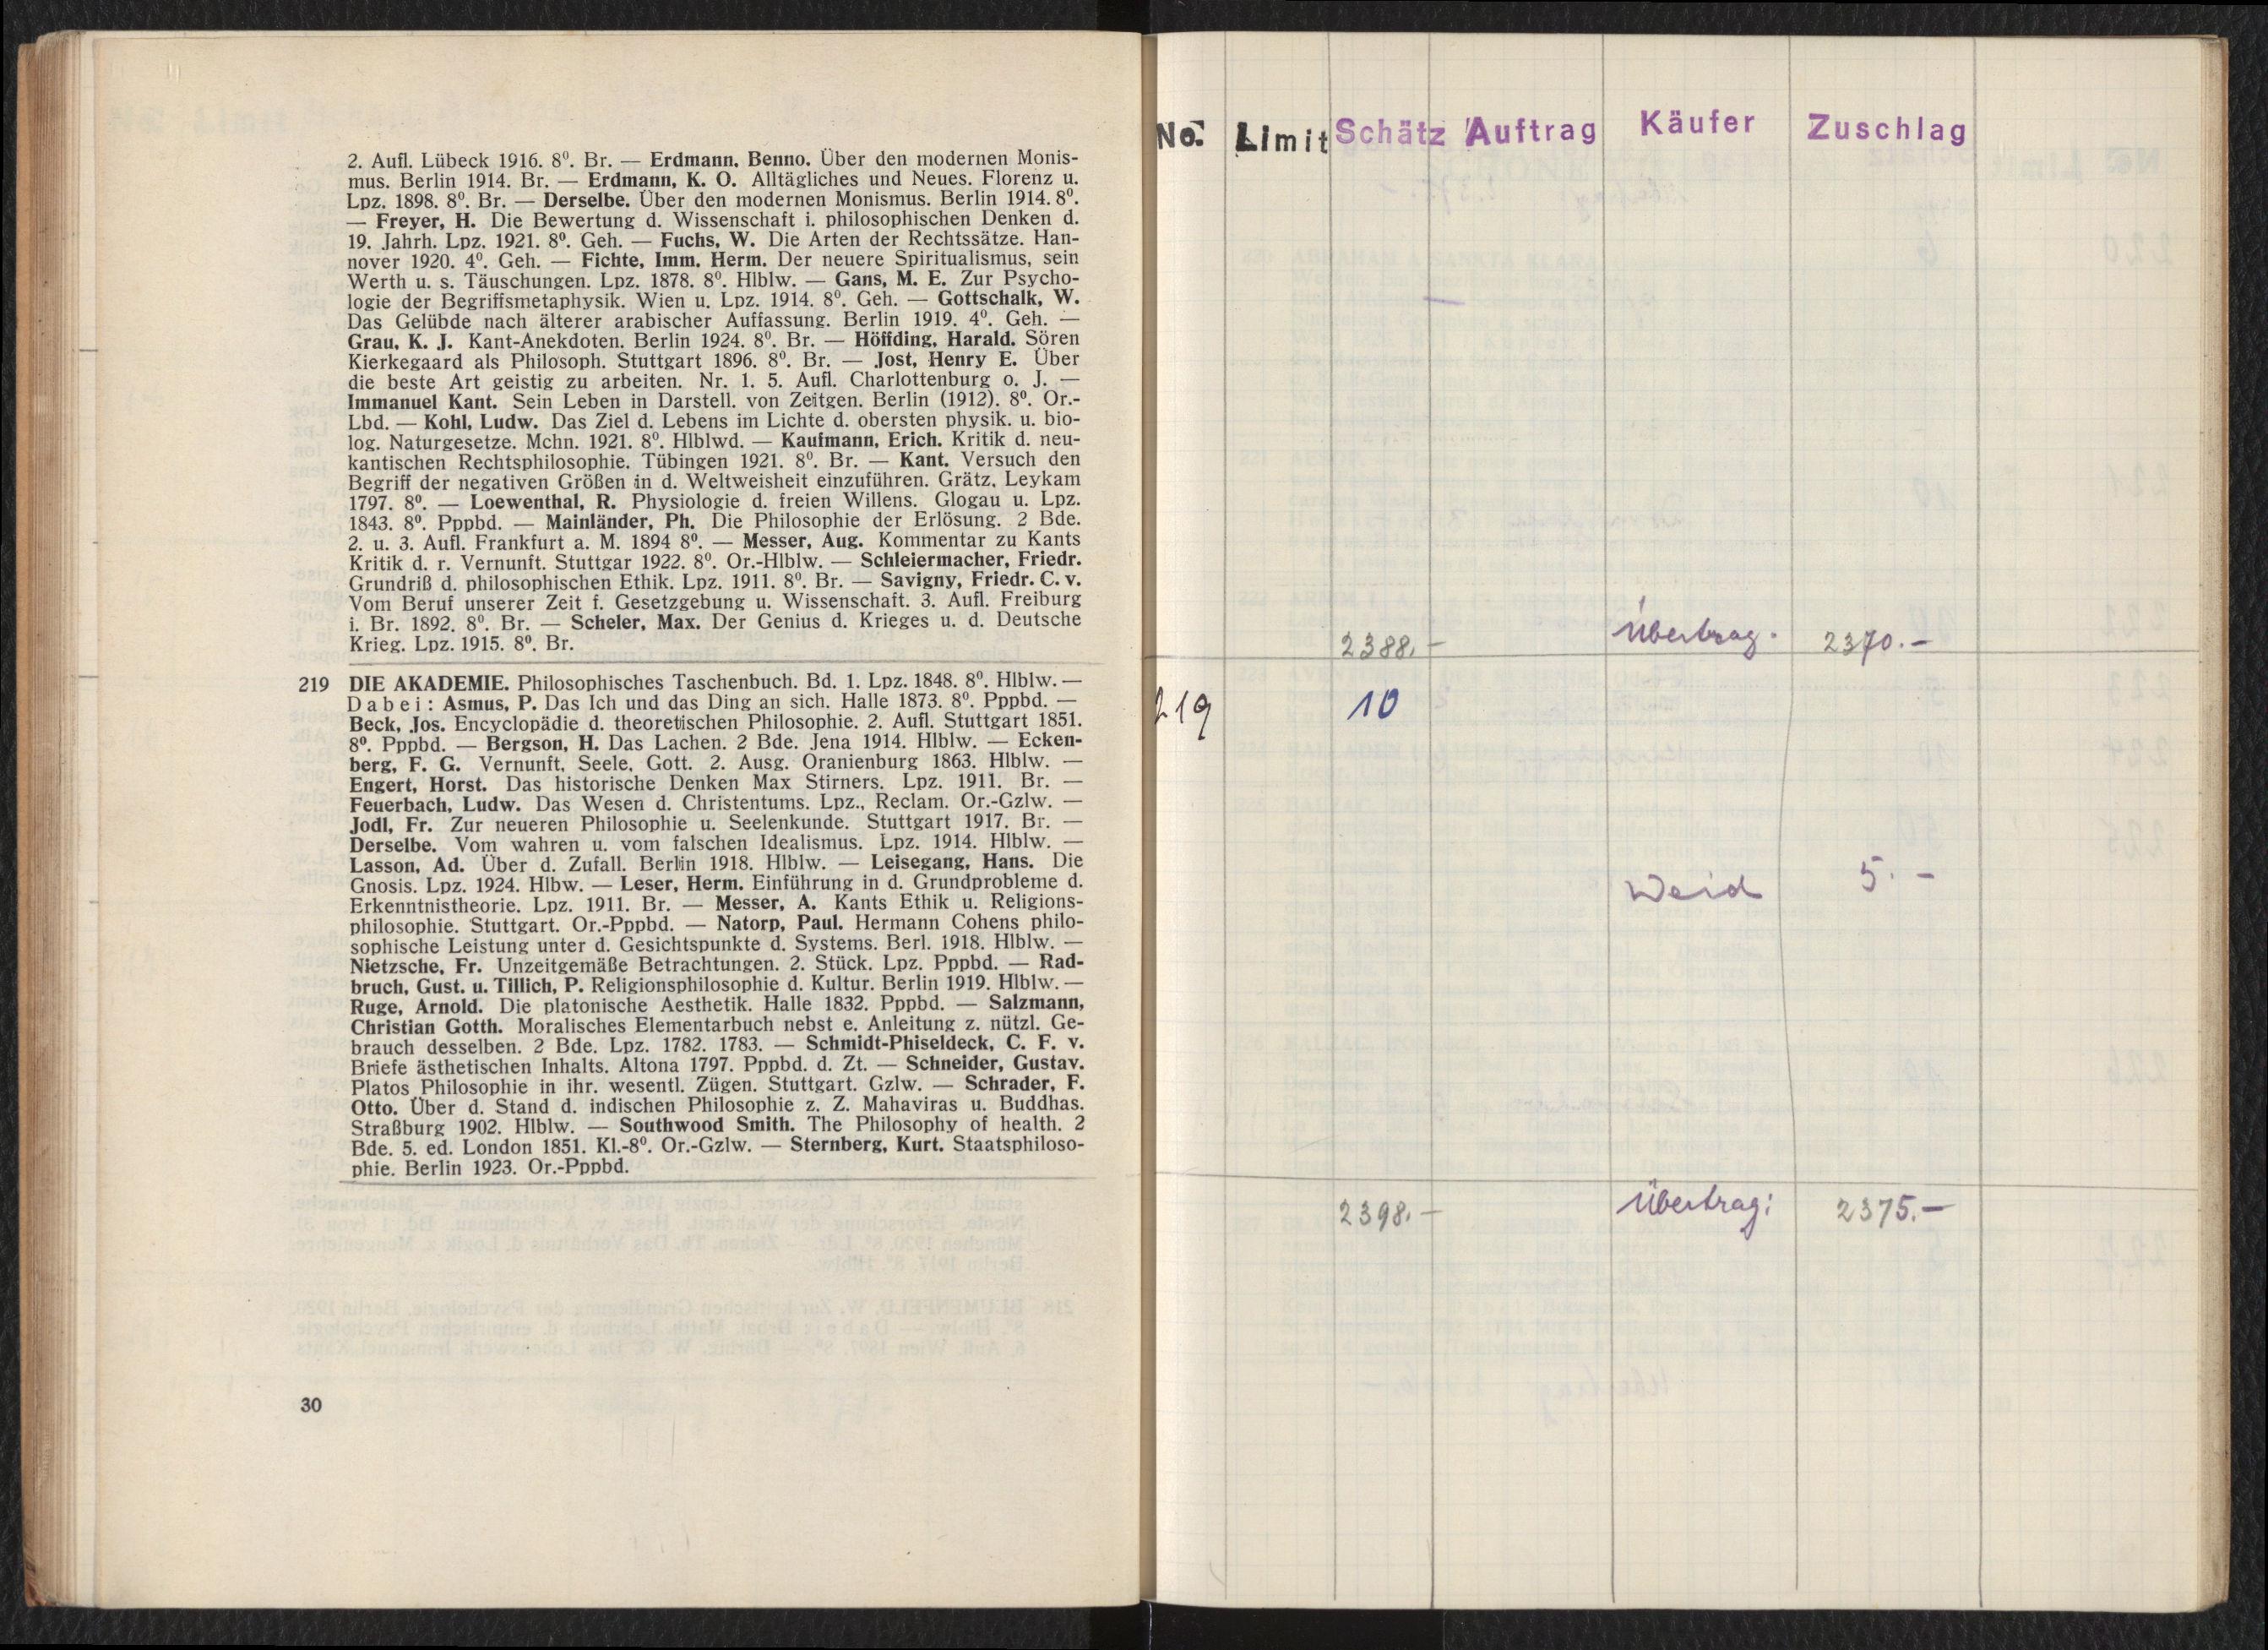 2. Aufl. Lübeck 1916. 8⁰. Br. — Erdmann, Benno. Über den modernen Monis-
mus. Berlin 1914. Br. — Erdmann, K. O. Alltägliches und Neues. Florenz u.
Lpz. 1898. 8⁰. Br. — Derselbe. Über den modernen Monismus. Berlin 1914. 8⁰.
— Freyer, H. Die Bewertung d. Wissenschaft i. philosophischen Denken d.
19. Jahrh. Lpz. 1921. 8⁰. Geh. — Fuchs, W. Die Arten der Rechtssätze. Han-
nover 1920. 4⁰. Geh. — Fichte, Imm. Herm. Der neuere Spiritualismus, sein
Werth u. s. Täuschungen. Lpz. 1878. 8⁰. Hlblw. — Gans, M. E. Zur Psycho-
logie der Begriffsmetaphysik. Wien u. Lpz. 1914. 8⁰. Geh. — Gottschalk, W.
Das Gelübde nach älterer arabischer Auffassung. Berlin 1919. 4⁰. Geh. —
Grau, K. J. Kant-Anekdoten. Berlin 1924. 8⁰. Br. — Höffding, Harald. Sören
Kierkegaard als Philosoph. Stuttgart 1896. 8⁰. Br. — Jost, Henry E. Über
die beste Art geistig zu arbeiten. Nr. 1. 5. Aufl. Charlottenburg o. J. —
Immanuel Kant. Sein Leben in Darstell. von Zeitgen. Berlin (1912). 8⁰. Or.-
Lbd. — Kohl, Ludw. Das Ziel d. Lebens im Lichte d. obersten physik. u. bio-
log. Naturgesetze. Mchn. 1921. 8⁰. Hlblwd. — Kaufmann, Erich. Kritik d. neu-
kantischen Rechtsphilosophie. Tübingen 1921. 8⁰. Br. — Kant. Versuch den
Begriff der negativen Größen in d. Weltweisheit einzuführen. Grätz, Leykam
1797. 8⁰. — Loewenthal, R. Physiologie d. freien Willens. Glogau u. Lpz.
1843. 8⁰. Pppbd. — Mainländer, Ph. Die Philosophie der Erlösung. 2 Bde.
2. u. 3. Aufl. Frankfurt a. M. 1894 8⁰. — Messer, Aug. Kommentar zu Kants
Kritik d. r. Vernunft. Stuttgar 1922. 8⁰. Or.-Hlblw. — Schleiermacher, Friedr.
Grundriß d. philosophischen Ethik. Lpz. 1911. 8⁰. Br. — Savigny, Friedr. C. v.
Vom Beruf unserer Zeit f. Gesetzgebung u. Wissenschaft. 3. Aufl. Freiburg
i. Br. 1892. 8⁰. Br. — Scheler, Max. Der Genius d. Krieges u. d. Deutsche
Krieg. Lpz. 1915. 8⁰. Br.
219 DIE AKADEMIE. Philosophisches Taschenbuch. Bd. 1. Lpz. 1848. 8⁰. Hlblw. —
Dabei: Asmus, P. Das Ich und das Ding an sich. Halle 1873. 8⁰. Pppbd. —
Beck, Jos. Encyclopädie d. theoretischen Philosophie. 2. Aufl. Stuttgart 1851.
8⁰. Pppbd. — Bergson, H. Das Lachen. 2 Bde. Jena 1914. Hlblw. — Ecken-
berg, F. G. Vernunft, Seele, Gott. 2. Ausg. Oranienburg 1863. Hlblw. —
Engert, Horst. Das historische Denken Max Stirners. Lpz. 1911. Br. —
Feuerbach, Ludw. Das Wesen d. Christentums. Lpz., Reclam. Or.-Gzlw. —
Jodl, Fr. Zur neueren Philosophie u. Seelenkunde. Stuttgart 1917. Br. —
Derselbe. Vom wahren u. vom falschen Idealismus. Lpz. 1914. Hlblw. —
Lasson, Ad. Über d. Zufall. Berlin 1918. Hlblw. — Leisegang, Hans. Die
Gnosis. Lpz. 1924. Hlbw. — Leser, Herm. Einführung in d. Grundprobleme d.
Erkenntnistheorie. Lpz. 1911. Br. — Messer, A. Kants Ethik u. Religions-
philosophie. Stuttgart. Or.-Pppbd. — Natorp, Paul. Hermann Cohens philo-
sophische Leistung unter d. Gesichtspunkte d. Systems. Berl. 1918. Hlblw. —
Nietzsche, Fr. Unzeitgemäße Betrachtungen. 2. Stück. Lpz. Pppbd. — Rad-
bruch, Gust. u. Tillich, P. Religionsphilosophie d. Kultur. Berlin 1919. Hlblw. —
Ruge, Arnold. Die platonische Aesthetik. Halle 1832. Pppbd. — Salzmann,
Christian Gotth. Moralisches Elementarbuch nebst e. Anleitung z. nützl. Ge-
brauch desselben. 2 Bde. Lpz. 1782. 1783. — Schmidt-Phiseldeck, C. F. v.
Briefe ästhetischen Inhalts. Altona 1797. Pppbd. d. Zt. — Schneider, Gustav.
Platos Philosophie in ihr. wesentl. Zügen. Stuttgart. Gzlw. — Schrader, F.
Otto. Über d. Stand d. indischen Philosophie z. Z. Mahaviras u. Buddhas.
Straßburg 1902. Hlblw. — Southwood Smith. The Philosophy of health. 2
Bde. 5. ed. London 1851. Kl.-8⁰. Or.-Gzlw. — Sternberg, Kurt. Staatsphiloso-
phie. Berlin 1923. Or.-Pppbd.
30
No. Limit Schätz Auftrag Käufer Zuschlag
2388.- Übertrag. 2370.-
219 10
Weid 5.-
2398.- Übertrag: 2375.-